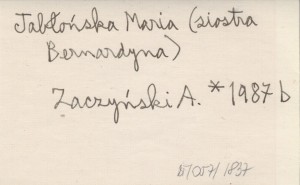 Jabłońska Maria (siostra
Bernardyna)
Zaczyński A. * 1987 b